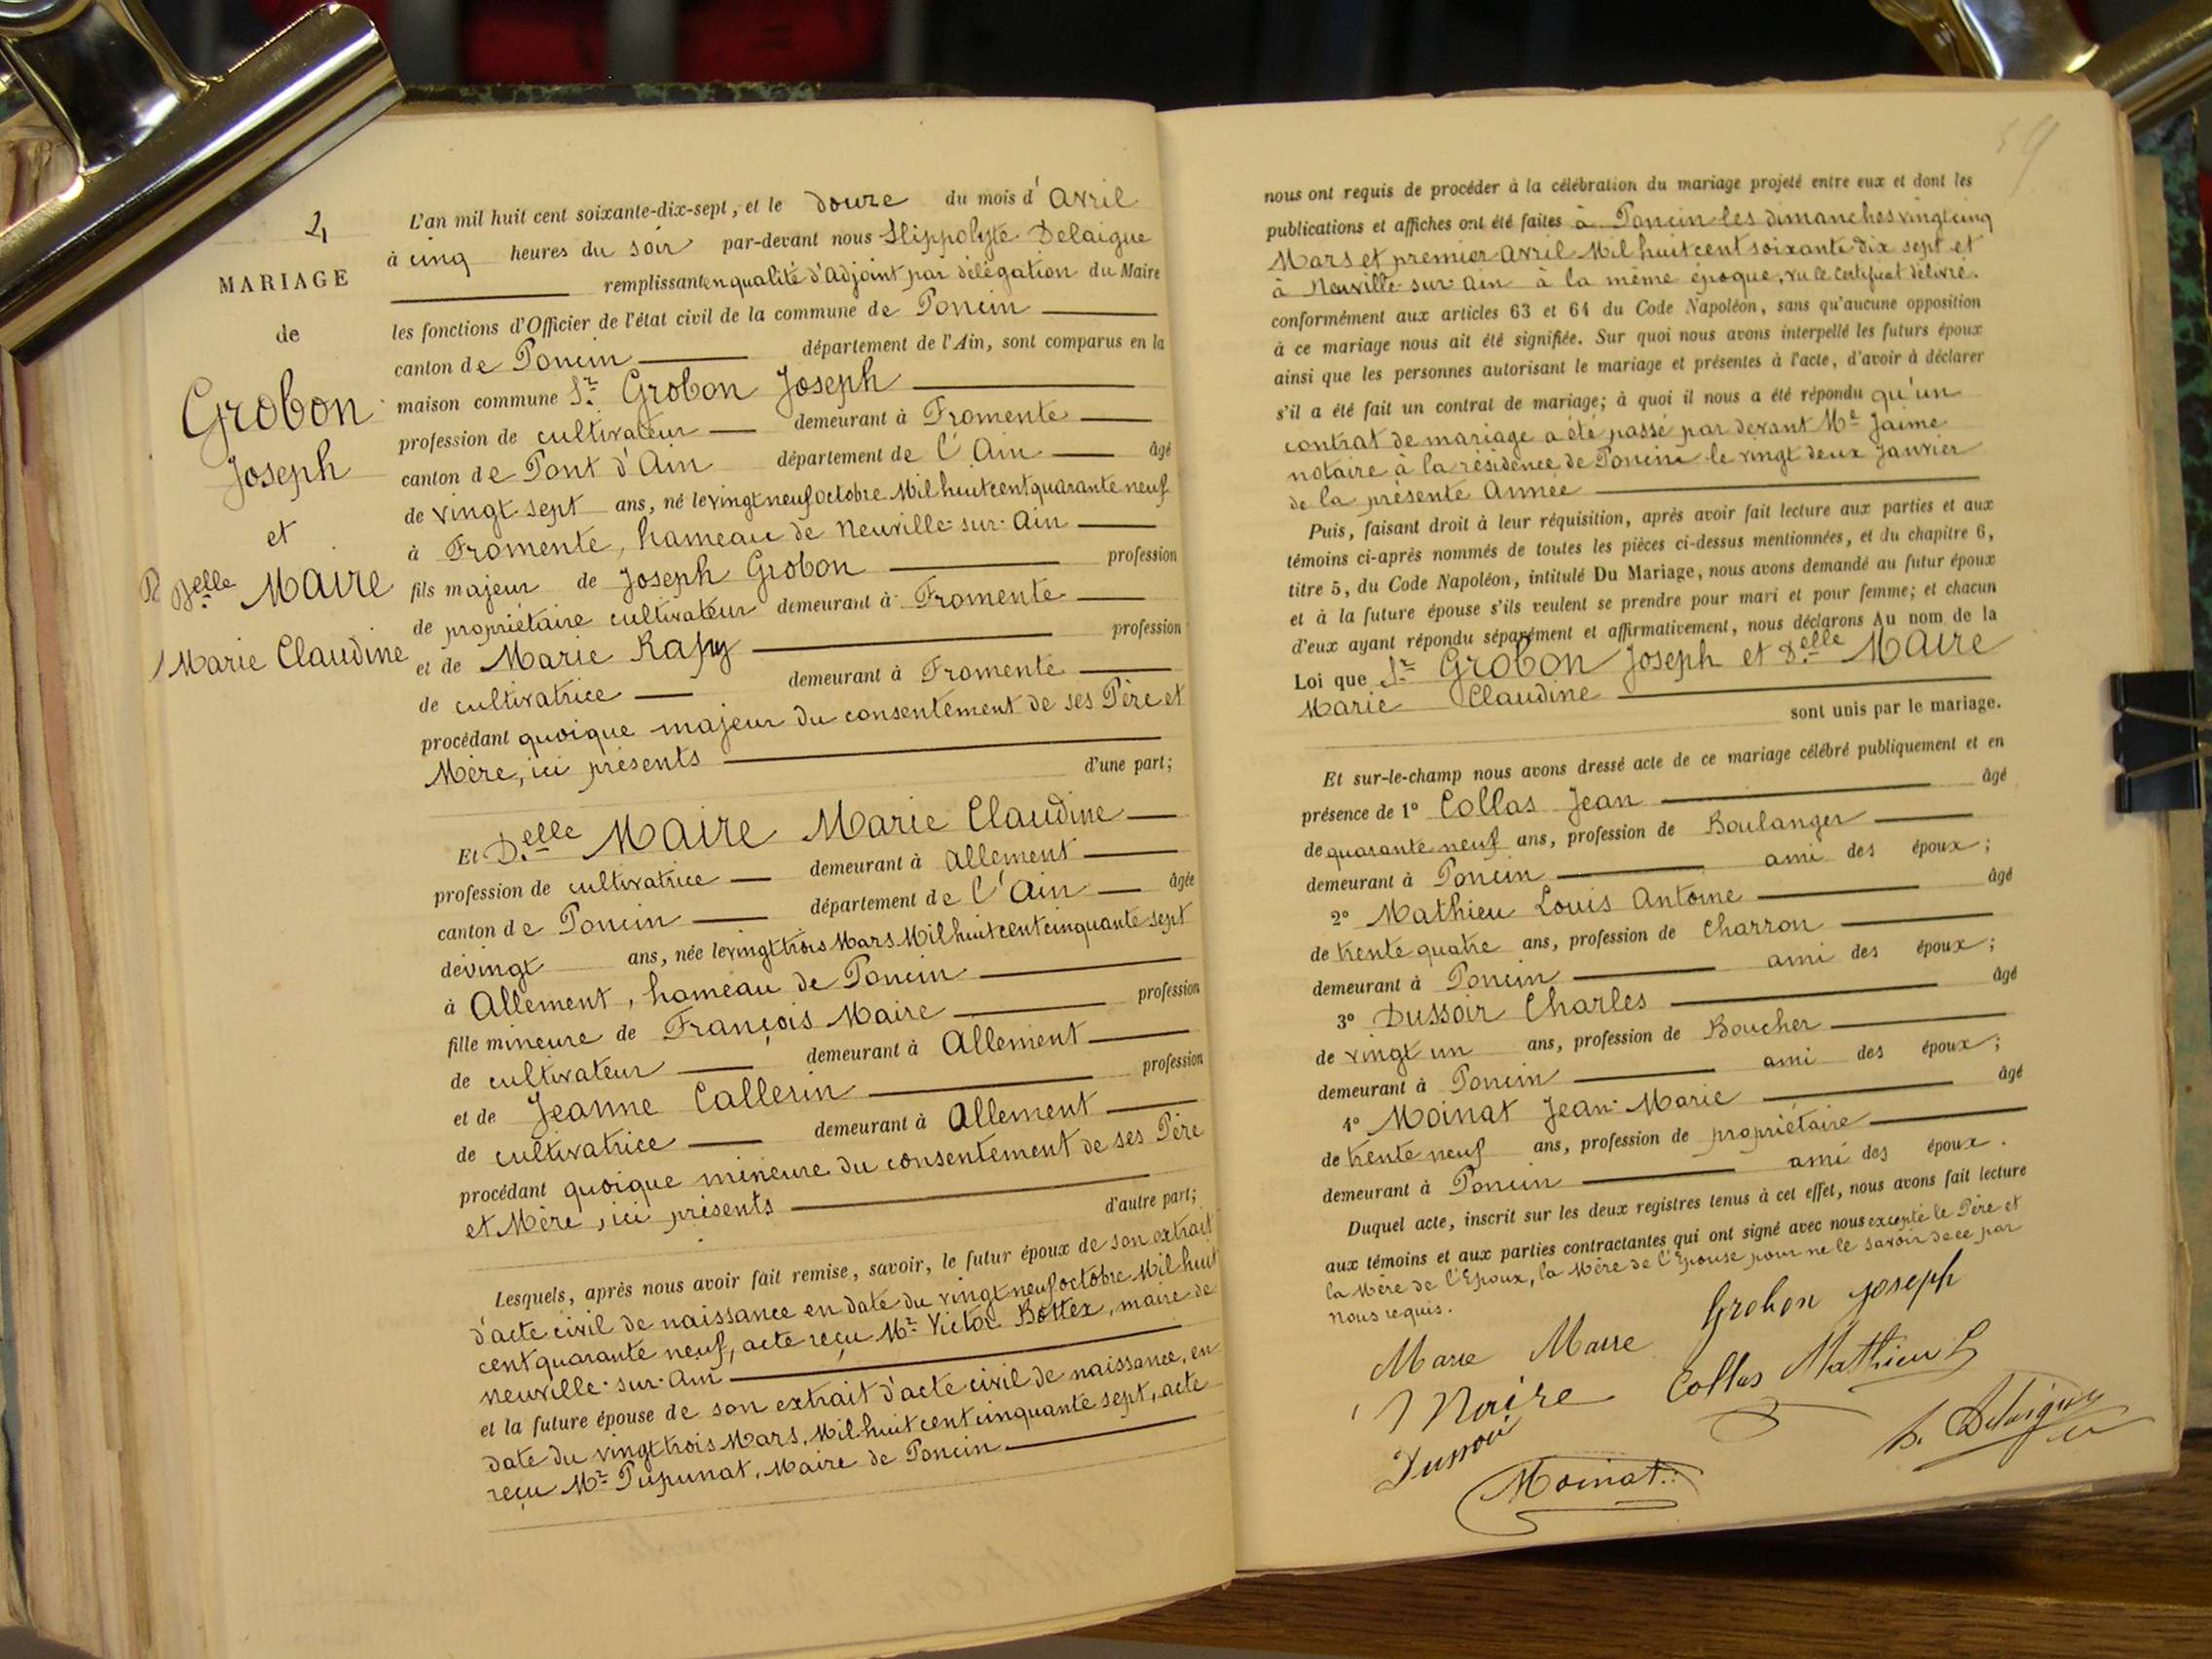 4
MARIAGE
de
Grobon
Joseph
et
Delle Maire
Marie Claudine
L'an mil huit cent soixante-dix-sept, et le douze du mois d'avril
à cinq heures du soir par-devant nous Hippolyte Delaigue
remplissant en qualité d'adjoint par délégation du Maire
les fonctions d'Officier de l'état civil de la commune de Poncin
canton de Poncin département de l'Ain, sont comparus en la
maison commune Sr Grobon Joseph
profession de cultivateur demeurant à Fromente
canton de Pont d'Ain département de l'Ain âgé
de vingt sept ans, né le vingt neuf octobre Mil huit cent quarante neuf
à Fromente, hameau de Neuville-sur-Ain
fils majeur de Joseph Grobon profession
de propriétaire cultivateur demeurant à Fromente
et de Marie Rapy profession
de cultivatrice demeurant à Fromente
procédant quoique majeur du consentement de ses Père et
Mère, ici présents
d'une part;
Et Delle Maire Marie Claudine
profession de cultivatrice demeurant à Allement
canton de Poncin département de l'Ain âgée
de vingt ans, née le vingt trois Mars Mil huit cent cinquante sept
à Allement, hameau de Poncin
fille mineure de François Maire profession
de cultivateur demeurant à Allement
et de Jeanne Callerin profession
de cultivatrice demeurant à Allement
procédant quoique mineure du consentement de ses Père
et Mère, ici présents
d'autre part;
Lesquels, après nous avoir fait remise, savoir, le futur époux de son extrait
d'acte civil de naissance en date du vingt neuf octobre Mil huit
cent quarante neuf, acte reçu Mr Victor Bottex, maire de
Neuville-sur-Ain
et la future épouse de son extrait d'acte civil de naissance, en
date du vingt trois Mars, Mil huit cent cinquante sept, acte
reçu Mr Pupunat, Maire de Poncin
nous ont requis de procéder à la célébration du mariage projeté entre eux et dont les
publications et affiches ont été faites à Poncin les dimanches vingt cinq
Mars et premier avril Mil huit cent soixante dix sept et
à Neuville-sur-Ain à la même époque, vu le certificat délivré.
conformément aux articles 63 et 64 du Code Napoléon, sans qu'aucune opposition
à ce mariage nous ait été signifiée. Sur quoi nous avons interpellé les futurs époux
ainsi que les personnes autorisant le mariage et présentes à l'acte, d'avoir à déclarer
s'il a été fait un contrat de mariage; à quoi il nous a été répondu qu'un
contrat de mariage a été passé par devant Me Jaime
notaire à la résidence de Poncin le vingt deux Janvier
de la présente Année
Puis, faisant droit à leur réquisition, après avoir fait lecture aux parties et aux
témoins ci-après nommés de toutes les pièces ci-dessus mentionnées, et du chapitre 6,
titre 5, du Code Napoléon, intitulé Du Mariage, nous avons demandé au futur époux
et à la future épouse s'ils veulent se prendre pour mari et pour femme; et chacun
d'eux ayant répondu séparément et affirmativement, nous déclarons Au nom de la
Loi que Sr Grobon Joseph et Delle Maire
Marie Claudine
sont unis par le mariage.
Et sur-le-champ nous avons dressé acte de ce mariage célébré publiquement et en
présence de 1° Collas Jean âgé
de quarante neuf ans, profession de Boulanger
demeurant à Poncin ami des époux;
2° Mathieu Louis Antoine âgé
de trente quatre ans, profession de Charron
demeurant à Poncin ami des époux;
3° Dussoir Charles âgé
de vingt un ans, profession de Boucher
demeurant à Poncin ami des époux;
4° Moinat Jean-Marie âgé
de trente neuf ans, profession de propriétaire
demeurant à Poncin ami des époux.
Duquel acte, inscrit sur les deux registres tenus à cet effet, nous avons fait lecture
aux témoins et aux parties contractantes qui ont signé avec nous excepté le Père et
la Mère de l'Epoux, la Mère de l'Epouse pour ne le savoir de ce par
nous requis.
Marie Maire Grobon Joseph
Maire Collas Mathieu L
Dussoir
Moinat
h. Delaigue